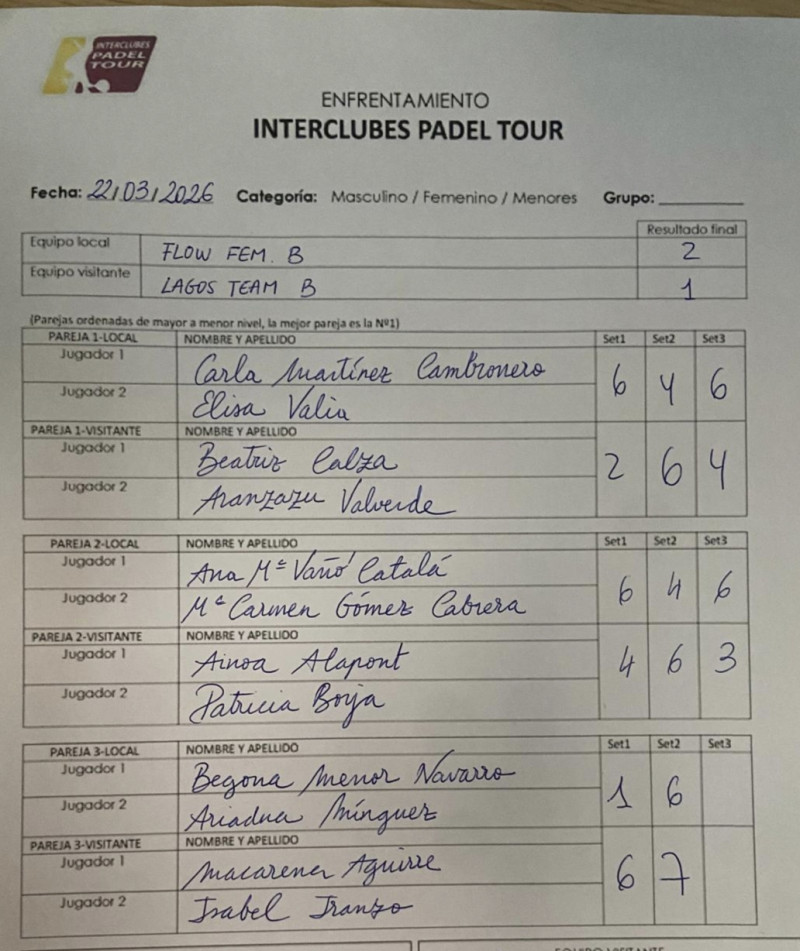 INTERCLUBES
PADEL
TOUR
ENFRENTAMIENTO
INTERCLUBES PADEL TOUR
Fecha: 22/03/2026 Categoría: Masculino / Femenino / Menores Grupo:
Resultado final
Equipo local FLOW FEM. B 2
Equipo visitante LAGOS TEAM B 1
(Parejas ordenadas de mayor a menor nivel, la mejor pareja es la Nº1)
PAREJA 1-LOCAL NOMBRE Y APELLIDO Set1 Set2 Set3
Jugador 1 Carla Martínez Cambronero
6 4 6
Jugador 2 Elisa Valia
PAREJA 1-VISITANTE NOMBRE Y APELLIDO
Jugador 1 Beatriz Calza
2 6 4
Jugador 2 Aranzazu Valverde
PAREJA 2-LOCAL NOMBRE Y APELLIDO Set1 Set2 Set3
Jugador 1 Ana Mª Vañó Catalá
6 4 6
Jugador 2 Mª Carmen Gómez Cabrera
PAREJA 2-VISITANTE NOMBRE Y APELLIDO
Jugador 1 Ainoa Alapont
4 6 3
Jugador 2 Patricia Borja
PAREJA 3-LOCAL NOMBRE Y APELLIDO Set1 Set2 Set3
Jugador 1 Begona Menor Navarro
1 6
Jugador 2 Ariadna Mínguez
PAREJA 3-VISITANTE NOMBRE Y APELLIDO
Jugador 1 Macarena Aguirre
6 7
Jugador 2 Isabel Iranzo